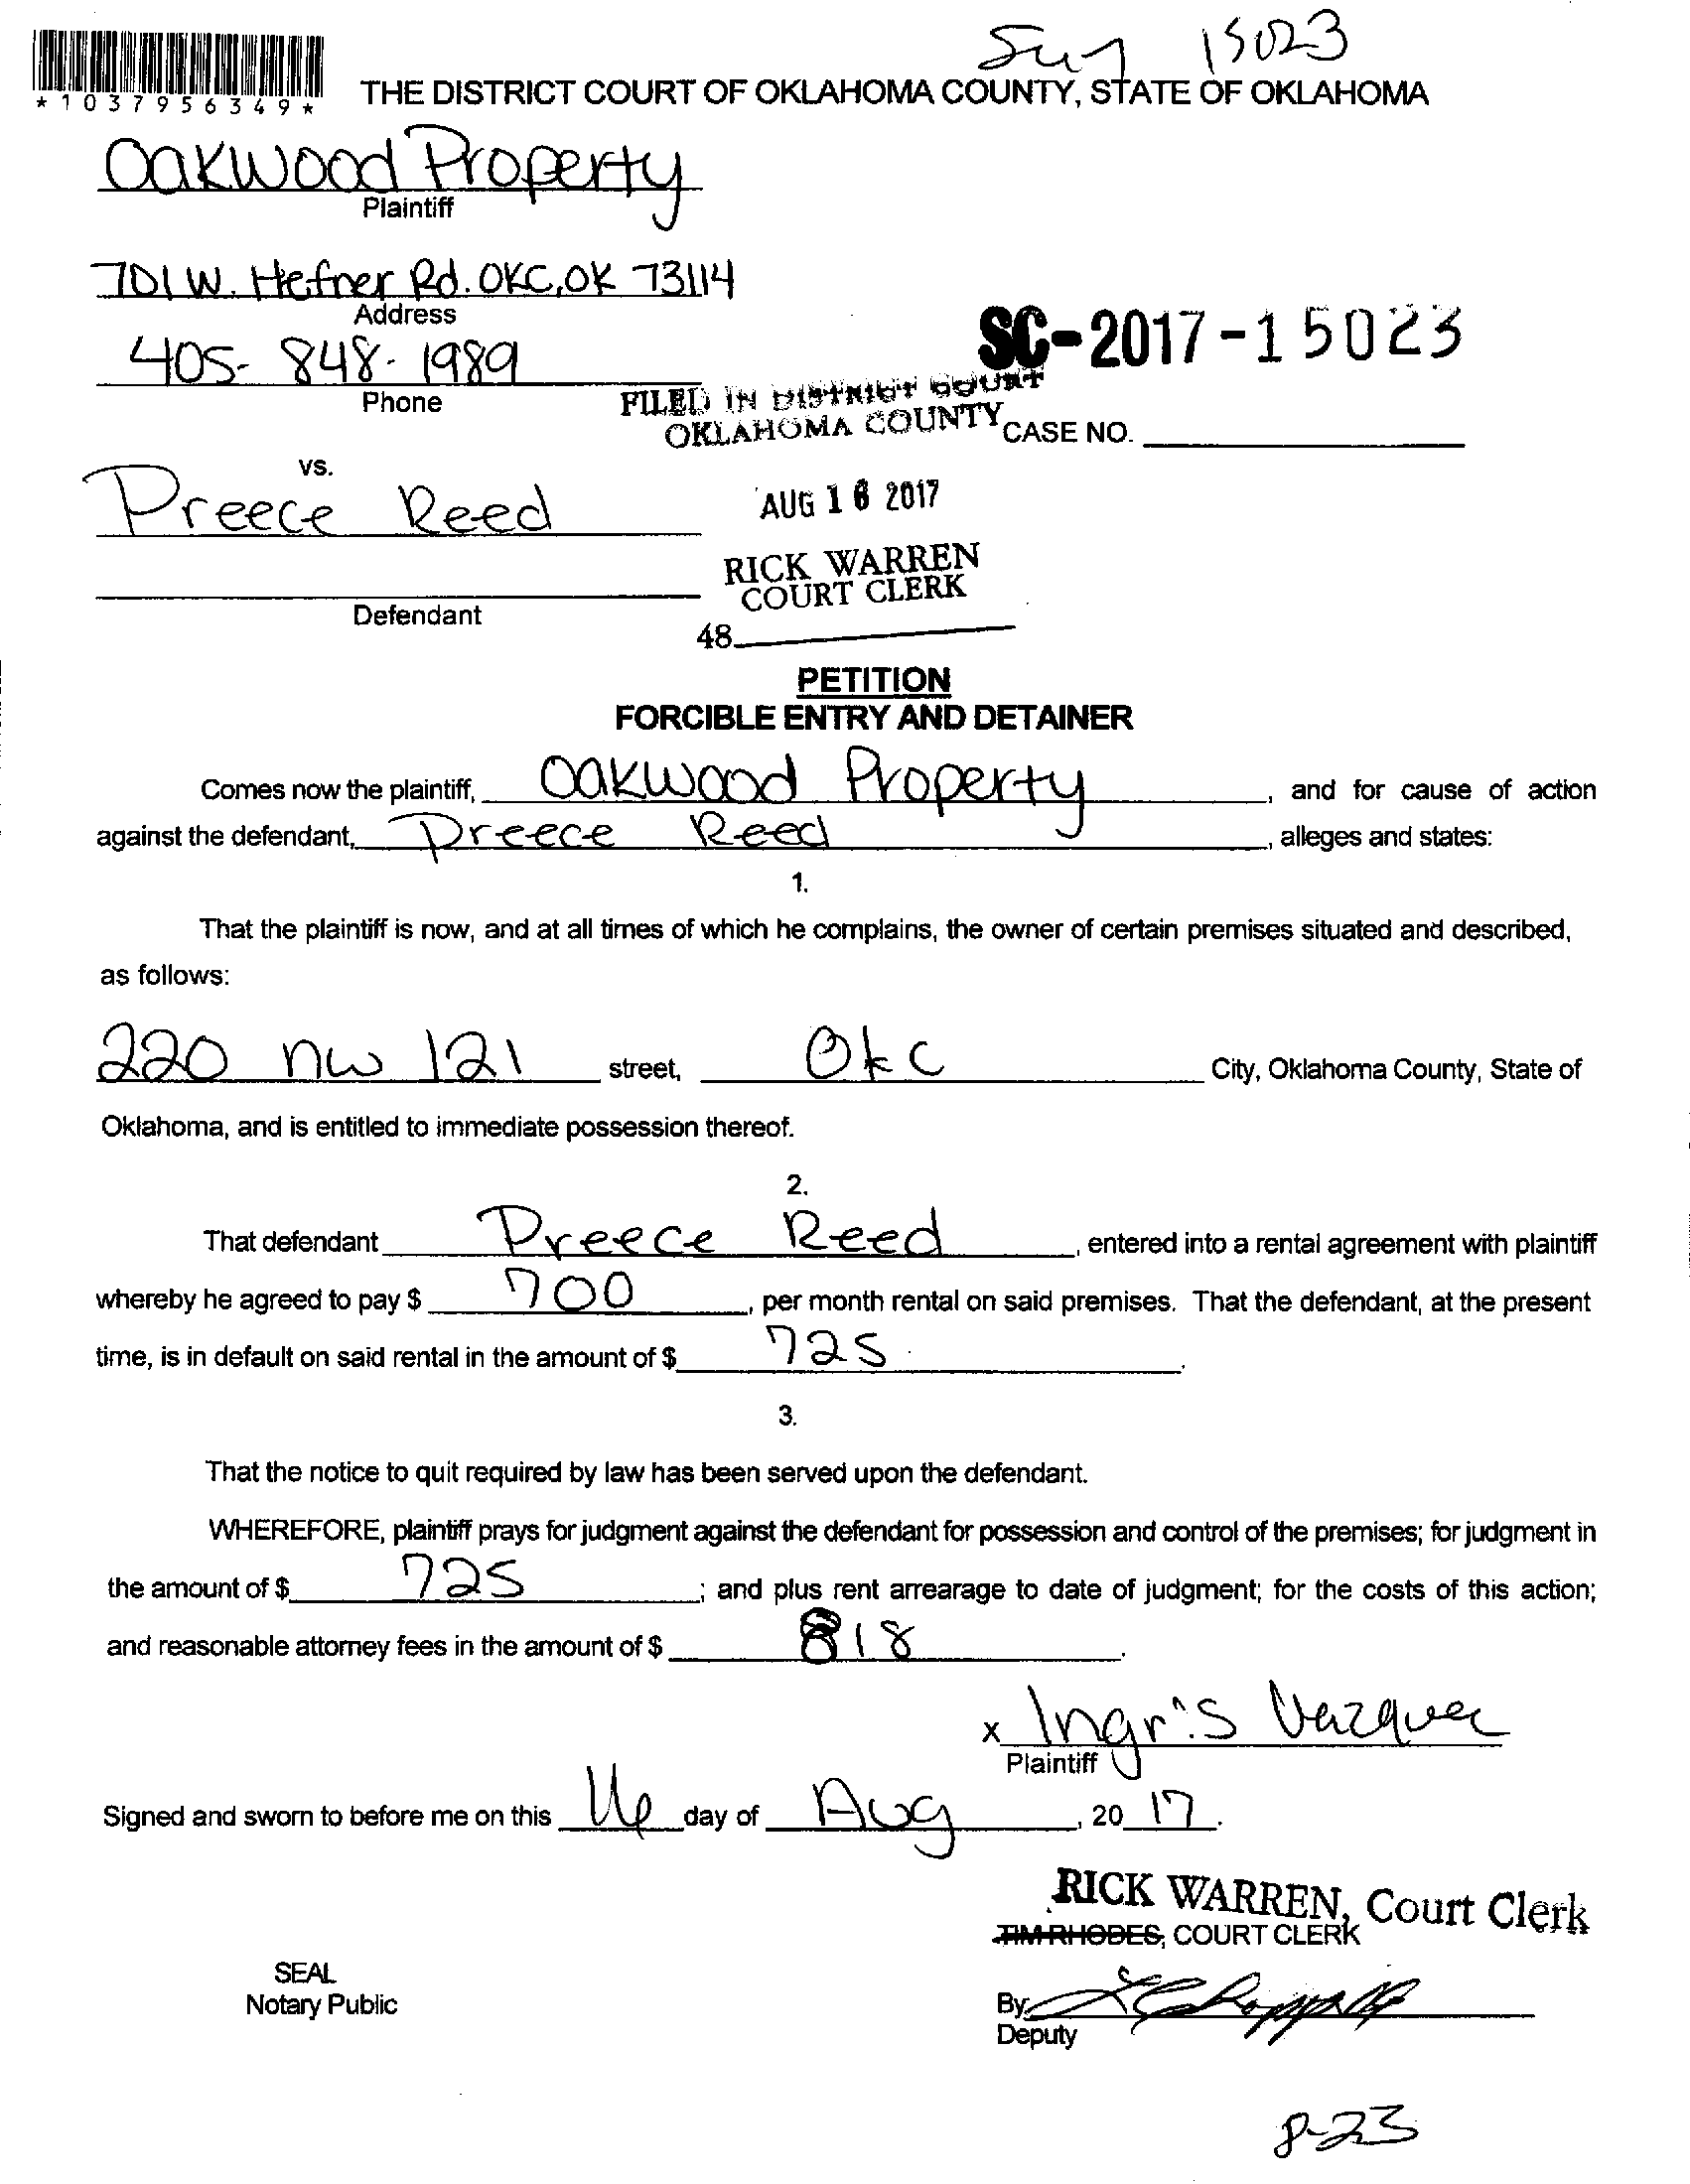 15023
*1037956349*
THE DISTRICT COURT OF OKLAHOMA COUNTY, STATE OF OKLAHOMA
Oakwood Property
Plaintiff
701 W. Hefner Rd. OKC, OK 73114
Address
SC-2017-15023
405-848-1989
Phone
FILED IN DISTRICT COURT
OKLAHOMA COUNTY
CASE NO.
vs.
Preece Reed
AUG 16 2017
RICK WARREN
COURT CLERK
Defendant
48
PETITION
FORCIBLE ENTRY AND DETAINER
Comes now the plaintiff, Oakwood Property, and for cause of action
against the defendant, Preece Reed, alleges and states:
1.
That the plaintiff is now, and at all times of which he complains, the owner of certain premises situated and described,
as follows:
220 nw 121 street, Okc City, Oklahoma County, State of
Oklahoma, and is entitled to immediate possession thereof.
2.
That defendant Preece Reed, entered into a rental agreement with plaintiff
whereby he agreed to pay $ 700, per month rental on said premises. That the defendant, at the present
time, is in default on said rental in the amount of $ 725.
3.
That the notice to quit required by law has been served upon the defendant.
WHEREFORE, plaintiff prays for judgment against the defendant for possession and control of the premises; for judgment in
the amount of $ 725; and plus rent arrearage to date of judgment; for the costs of this action;
and reasonable attorney fees in the amount of $ 818.
x Ingris Vazquez
Plaintiff
Signed and sworn to before me on this 16 day of Aug, 20 17.
RICK WARREN, Court Clerk
TIM RHODES, COURT CLERK
SEAL
Notary Public
By
Deputy
8-23